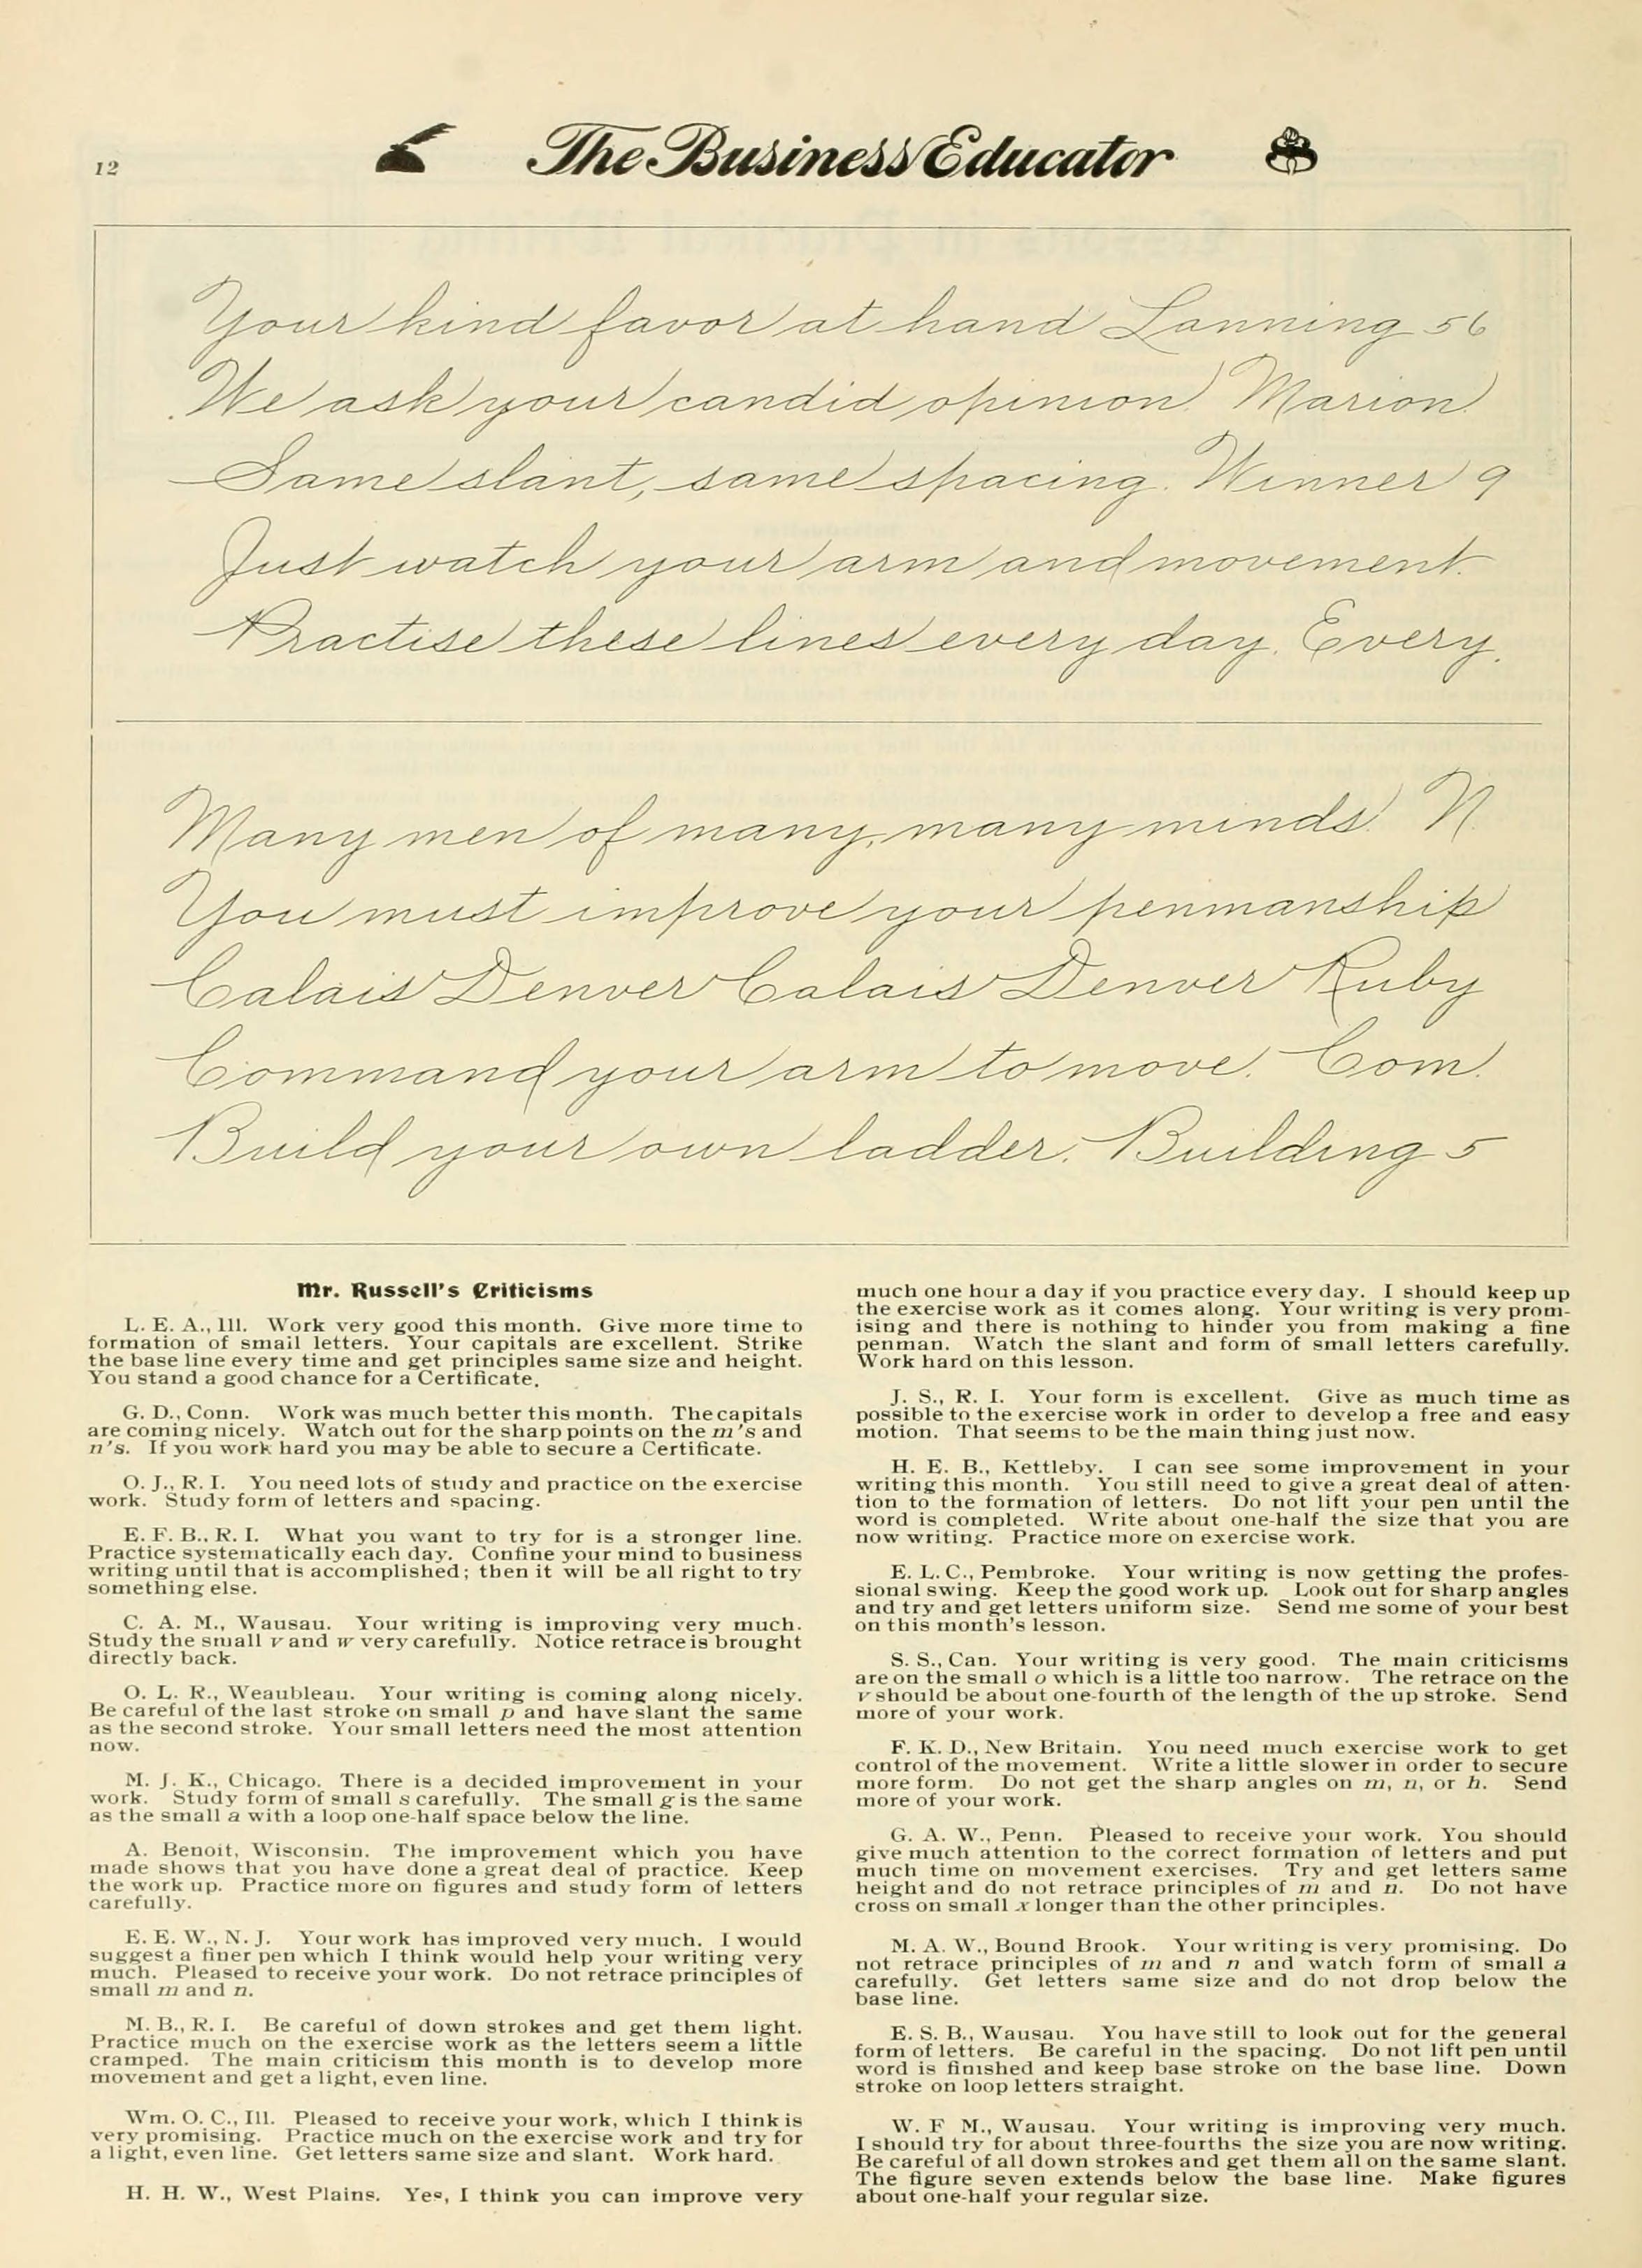 12
The Business Educator
Your kind favor at hand Lanning 56
We ask your candid opinion. Marion
Same slant, same spacing. Winner 9
Just watch your arm and movement.
Practise these lines every day. Every.
Many men of many, many minds. N.
You must improve your penmanship
Calais Denver Calais Denver Ruby
Command your arm to move. Com.
Build your own ladder. Building 5
Mr. Russell's Criticisms
L. E. A., Ill. Work very good this month. Give more time to
formation of small letters. Your capitals are excellent. Strike
the base line every time and get principles same size and height.
You stand a good chance for a Certificate.
G. D., Conn. Work was much better this month. The capitals
are coming nicely. Watch out for the sharp points on the m's and
n's. If you work hard you may be able to secure a Certificate.
O. J., R. I. You need lots of study and practice on the exercise
work. Study form of letters and spacing.
E. F. B., R. I. What you want to try for is a stronger line.
Practice systematically each day. Confine your mind to business
writing until that is accomplished; then it will be all right to try
something else.
C. A. M., Wausau. Your writing is improving very much.
Study the small v and w very carefully. Notice retrace is brought
directly back.
O. L. R., Weaubleau. Your writing is coming along nicely.
Be careful of the last stroke on small p and have slant the same
as the second stroke. Your small letters need the most attention
now.
M. J. K., Chicago. There is a decided improvement in your
work. Study form of small s carefully. The small g is the same
as the small a with a loop one-half space below the line.
A. Benoit, Wisconsin. The improvement which you have
made shows that you have done a great deal of practice. Keep
the work up. Practice more on figures and study form of letters
carefully.
E. E. W., N. J. Your work has improved very much. I would
suggest a finer pen which I think would help your writing very
much. Pleased to receive your work. Do not retrace principles of
small m and n.
M. B., R. I. Be careful of down strokes and get them light.
Practice much on the exercise work as the letters seem a little
cramped. The main criticism this month is to develop more
movement and get a light, even line.
Wm. O. C., Ill. Pleased to receive your work, which I think is
very promising. Practice much on the exercise work and try for
a light, even line. Get letters same size and slant. Work hard.
H. H. W., West Plains. Yes, I think you can improve very
much one hour a day if you practice every day. I should keep up
the exercise work as it comes along. Your writing is very prom-
ising and there is nothing to hinder you from making a fine
penman. Watch the slant and form of small letters carefully.
Work hard on this lesson.
J. S., R. I. Your form is excellent. Give as much time as
possible to the exercise work in order to develop a free and easy
motion. That seems to be the main thing just now.
H. E. B., Kettleby. I can see some improvement in your
writing this month. You still need to give a great deal of atten-
tion to the formation of letters. Do not lift your pen until the
word is completed. Write about one-half the size that you are
now writing. Practice more on exercise work.
E. L. C., Pembroke. Your writing is now getting the profes-
sional swing. Keep the good work up. Look out for sharp angles
and try and get letters uniform size. Send me some of your best
on this month's lesson.
S. S., Can. Your writing is very good. The main criticisms
are on the small o which is a little too narrow. The retrace on the
v should be about one-fourth of the length of the up stroke. Send
more of your work.
F. K. D., New Britain. You need much exercise work to get
control of the movement. Write a little slower in order to secure
more form. Do not get the sharp angles on m, n, or h. Send
more of your work.
G. A. W., Penn. Pleased to receive your work. You should
give much attention to the correct formation of letters and put
much time on movement exercises. Try and get letters same
height and do not retrace principles of m and n. Do not have
cross on small x longer than the other principles.
M. A. W., Bound Brook. Your writing is very promising. Do
not retrace principles of m and n and watch form of small a
carefully. Get letters same size and do not drop below the
base line.
E. S. B., Wausau. You have still to look out for the general
form of letters. Be careful in the spacing. Do not lift pen until
word is finished and keep base stroke on the base line. Down
stroke on loop letters straight.
W. F M., Wausau. Your writing is improving very much.
I should try for about three-fourths the size you are now writing.
Be careful of all down strokes and get them all on the same slant.
The figure seven extends below the base line. Make figures
about one-half your regular size.